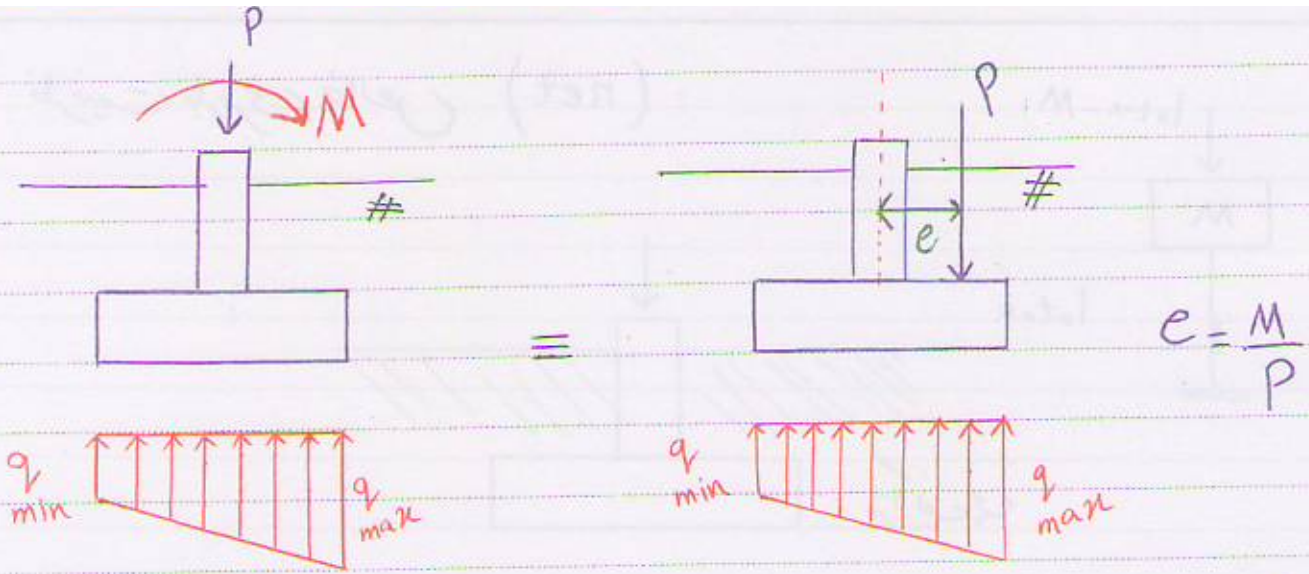 P
M
#
q
min
q
max
≡
P
#
e
e = M
P
q
min
q
max
(net)